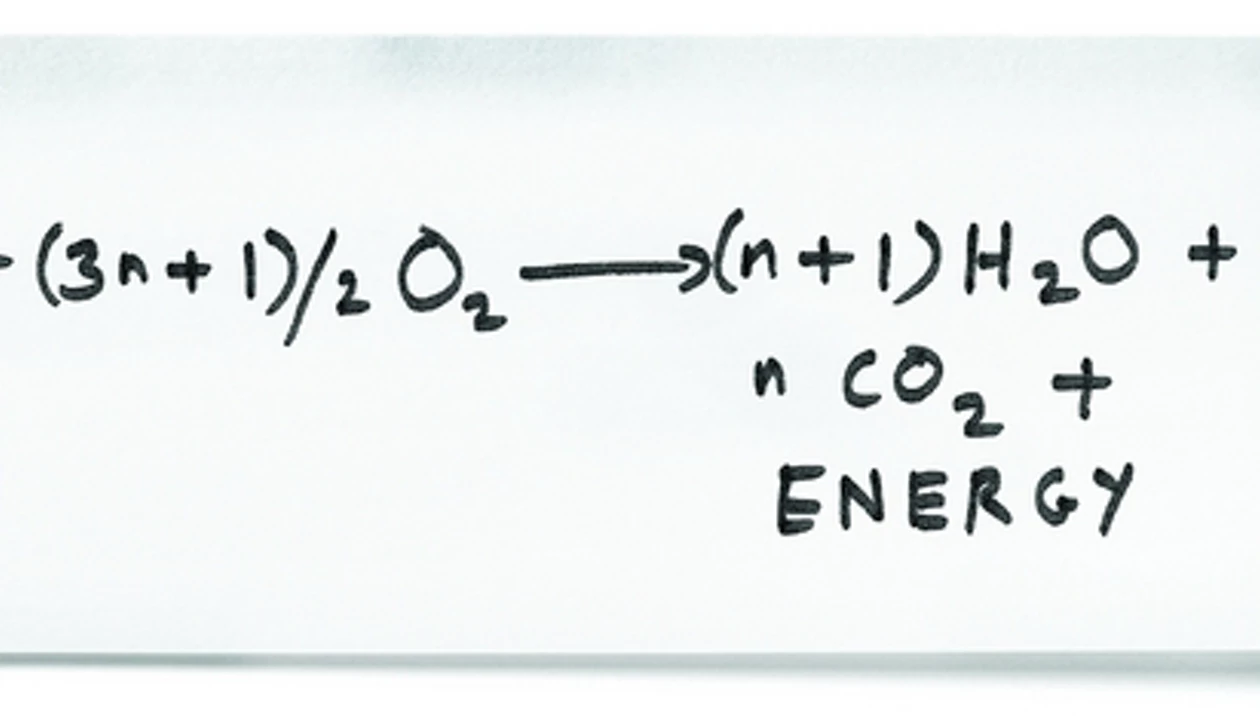 (3n+1)/2 O₂ ⟶ (n+1)H₂O +
n CO₂ +
ENERGY